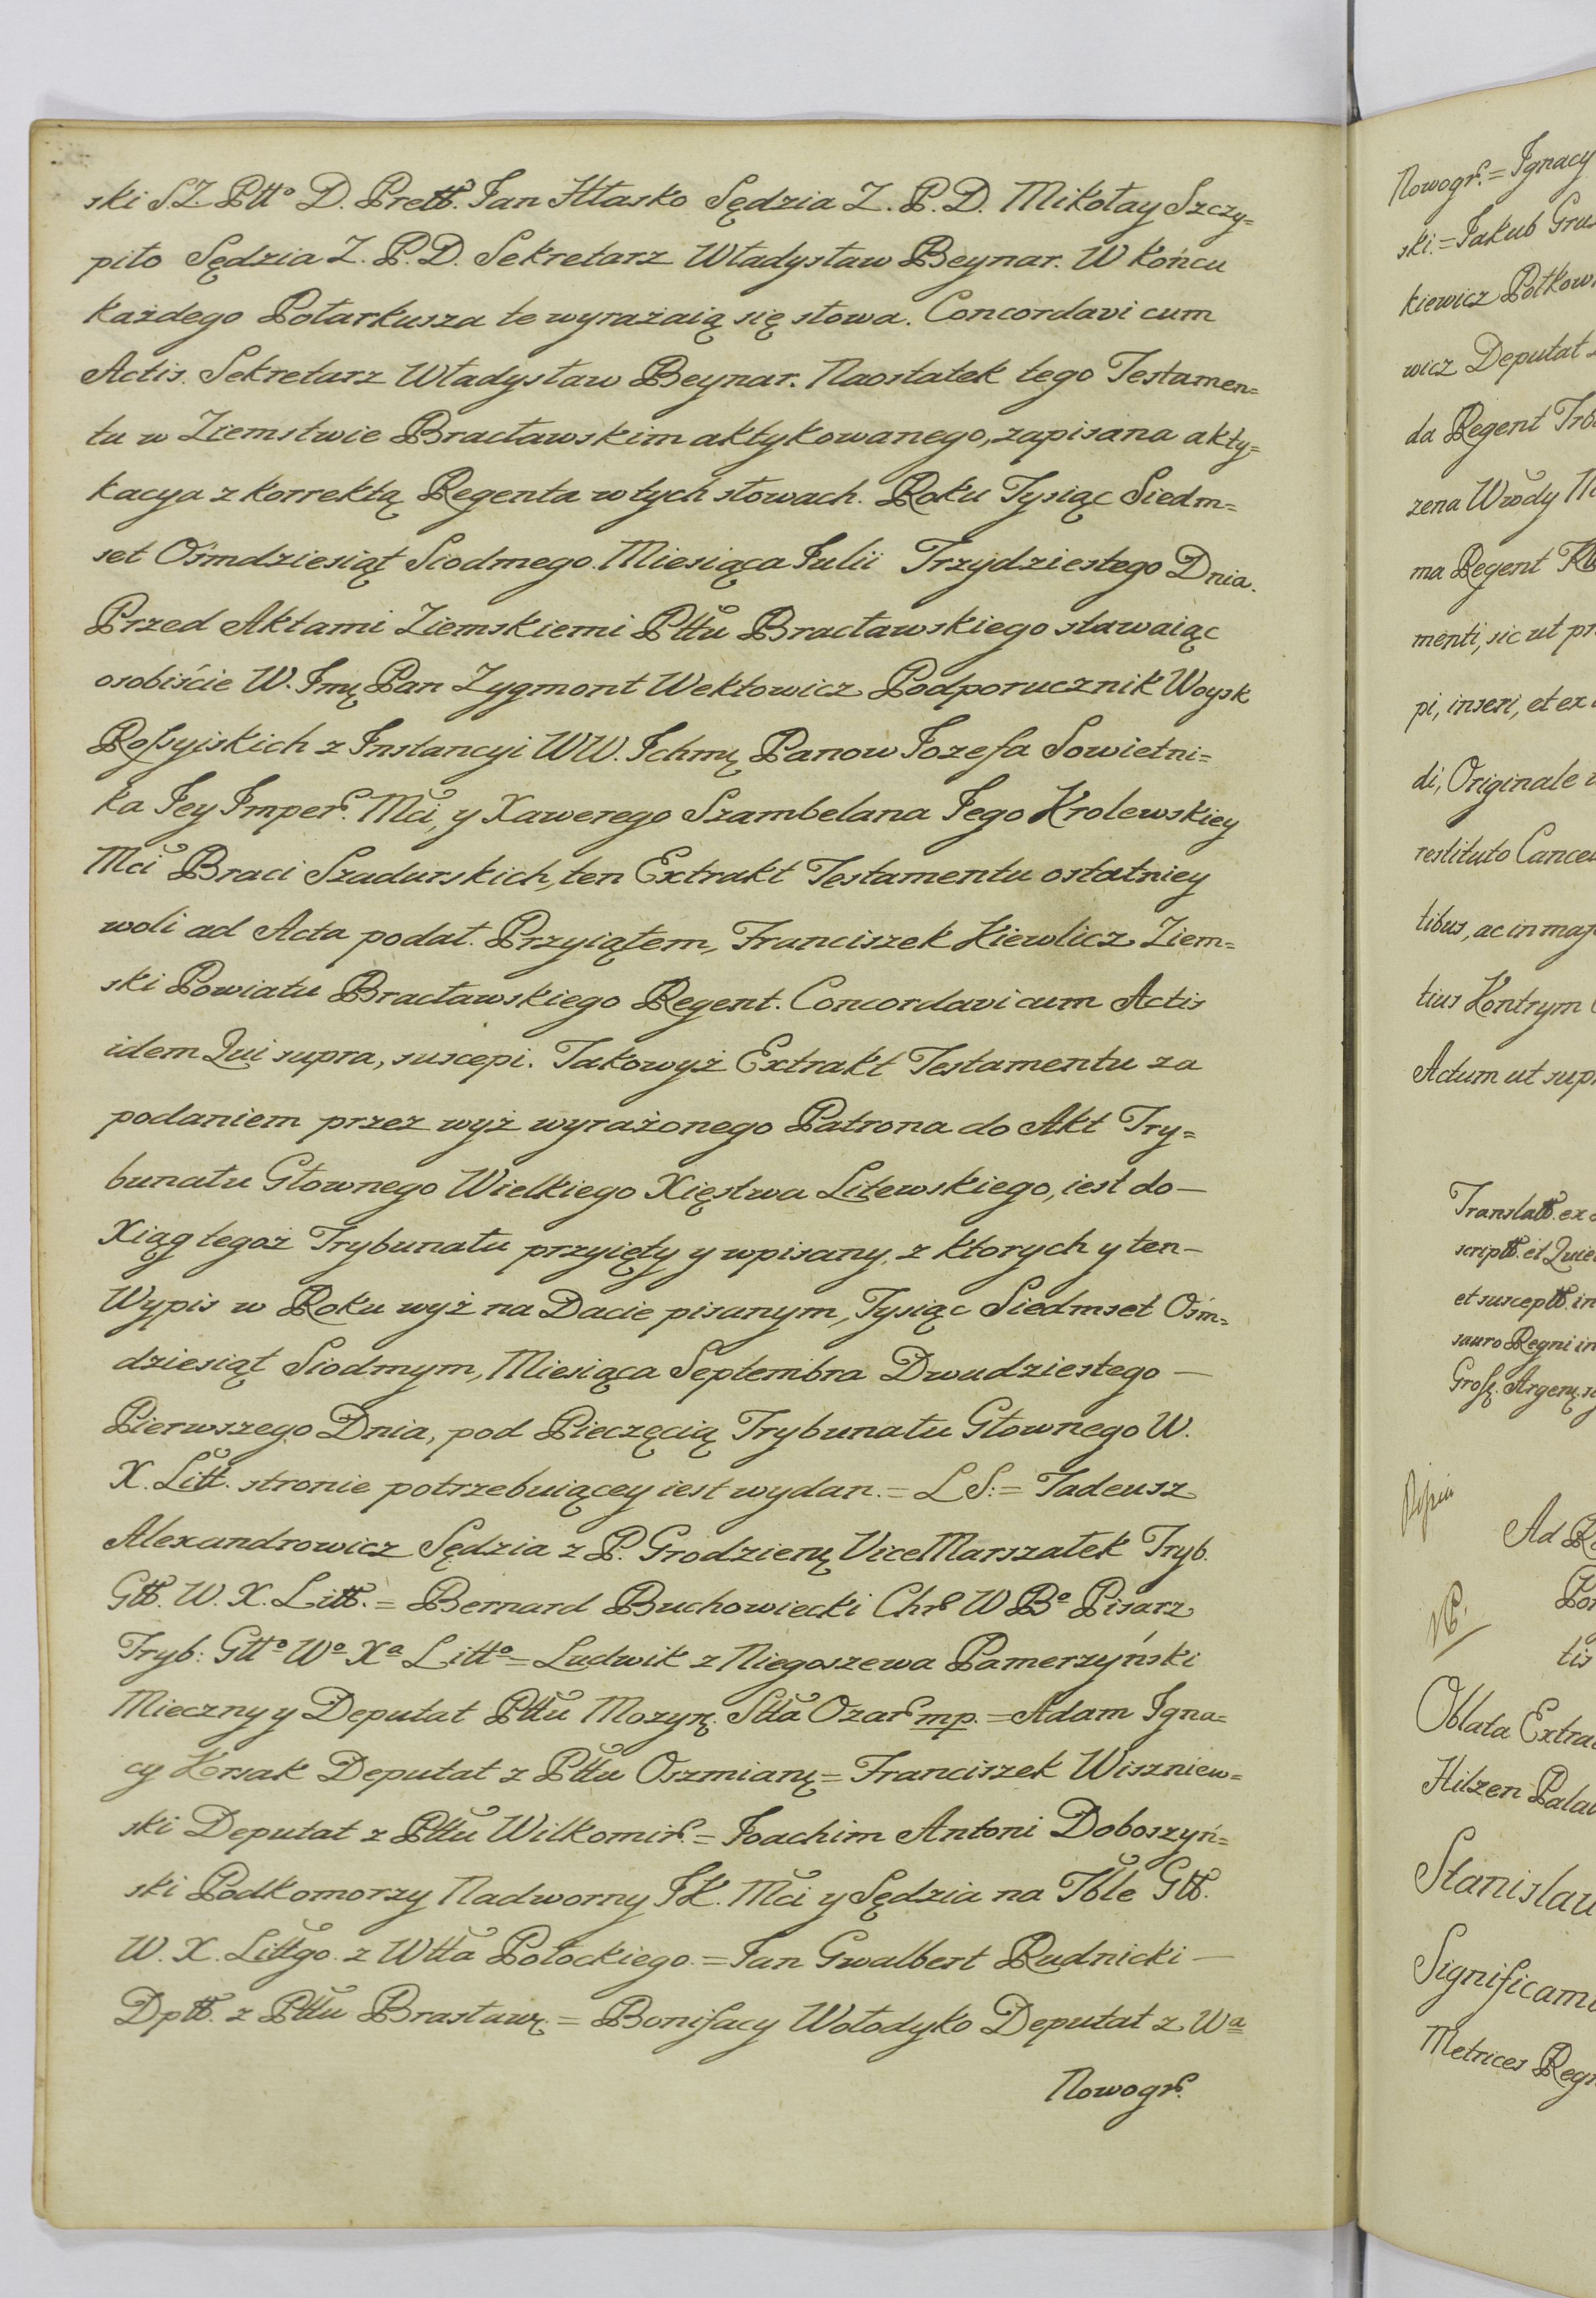 ski S.Z. Pttº D. Prett. Jan Hłasko Sędzia Z. P. D. Mikołay Szczy=
piło Sędzia Z. P. D. Sekretarz Władysław Beynar. W końcu
każdego Połarkusza te wyrażaią się słowa. Concordavi cum
Actis. Sekretarz Władysław Beynar. Naostatek tego Testamen=
tu w Ziemstwie Bracławskim aktykowanego, zapisana akty=
kacya z korrektą Regenta w tych słowach. Roku Tysiąc Siedm=
set Ośmdziesiąt Siodmego. Miesiąca Julii Trzydziestego Dnia.
Przed Aktami Ziemskiemi Pttu Bracławskiego stawaiąc
osobiście W. Jmę Pan Zygmont Wektowicz Podporucznik Woysk
Roſsyiskich z Instancyi WW. Ichmę Panow Jozefa Sowietni=
ka Jey Imper. Mći, y Xawerego Szambelana Jego Krolewskiey
Mći Braci Szadurskich, ten Extrakt Testamentu ostatniey
woli ad Acta podał. Przyiąłem, Franciszek Kiewlicz Ziem=
ski Powiatu Bracławskiego Regent. Concordavi cum Actis
idem Qui supra, suscepi. Takowyż Extrakt Testamentu za
podaniem przez wyż wyrażonego Patrona do Akt Try=
bunału Głownego Wielkiego Xięstwa Litewskiego, iest do—
Xiąg tegoż Trybunału przyięty y wpisany, z ktorych y ten—
Wypis w Roku wyż na Dacie pisanym, Tysiąc Siedmset Ośm=
dziesiąt Siodmym, Miesiąca Septembra Dwudziestego —
Pierwszego Dnia, pod Pieczęcią Trybunału Głownego W.
X. Litt. stronie potrzebuiącey iest wydan. = L S: = Tadeusz
Alexandrowicz Sędzia z P. Grodzienę Vice Marszałek Tryb.
Gtt. W. X. Litt. = Bernard Buchowiecki Chr W Bº Pisarz
Tryb: Gttº Wº Xª Littº = Ludwik z Niegoszewa Pamerzyński
Mieczny y Deputat Pttu Mozyrę. Stta Ozar mp. = Adam Igna=
cy Korsak Deputat z Pttu Oszmianę = Franciszek Wiszniew=
ski Deputat z Pttu Wilkomir. = Joachim Antoni Doboszyń=
ski Podkomorzy Nadworny J K. Mći y Sędzia na Tble Gtt.
W. X. Littgo. z Wtta Połockiego. = Jan Gwalbert Rudnicki —
Dptt. z Pttu Brasławę. = Bonifacy Wołodyko Deputat z Wª
Nowogr.
Nowogr. = Ignacy
ski. = Jakub
kiewicz
wicz Deputat
da Regent
zena Wwody
ma Regent
menti, sic ut
pi, inseri, et ex
di, Originale
restituto
tibus, ac in
tius Kontrym
Actum ut
Translatt. ex
scriptt. et
et susceptt. in
sauro Regni in
Groſz. Argenę.
Ad
NB.
tis
Oblata
Hilzen
Significam
Metrices